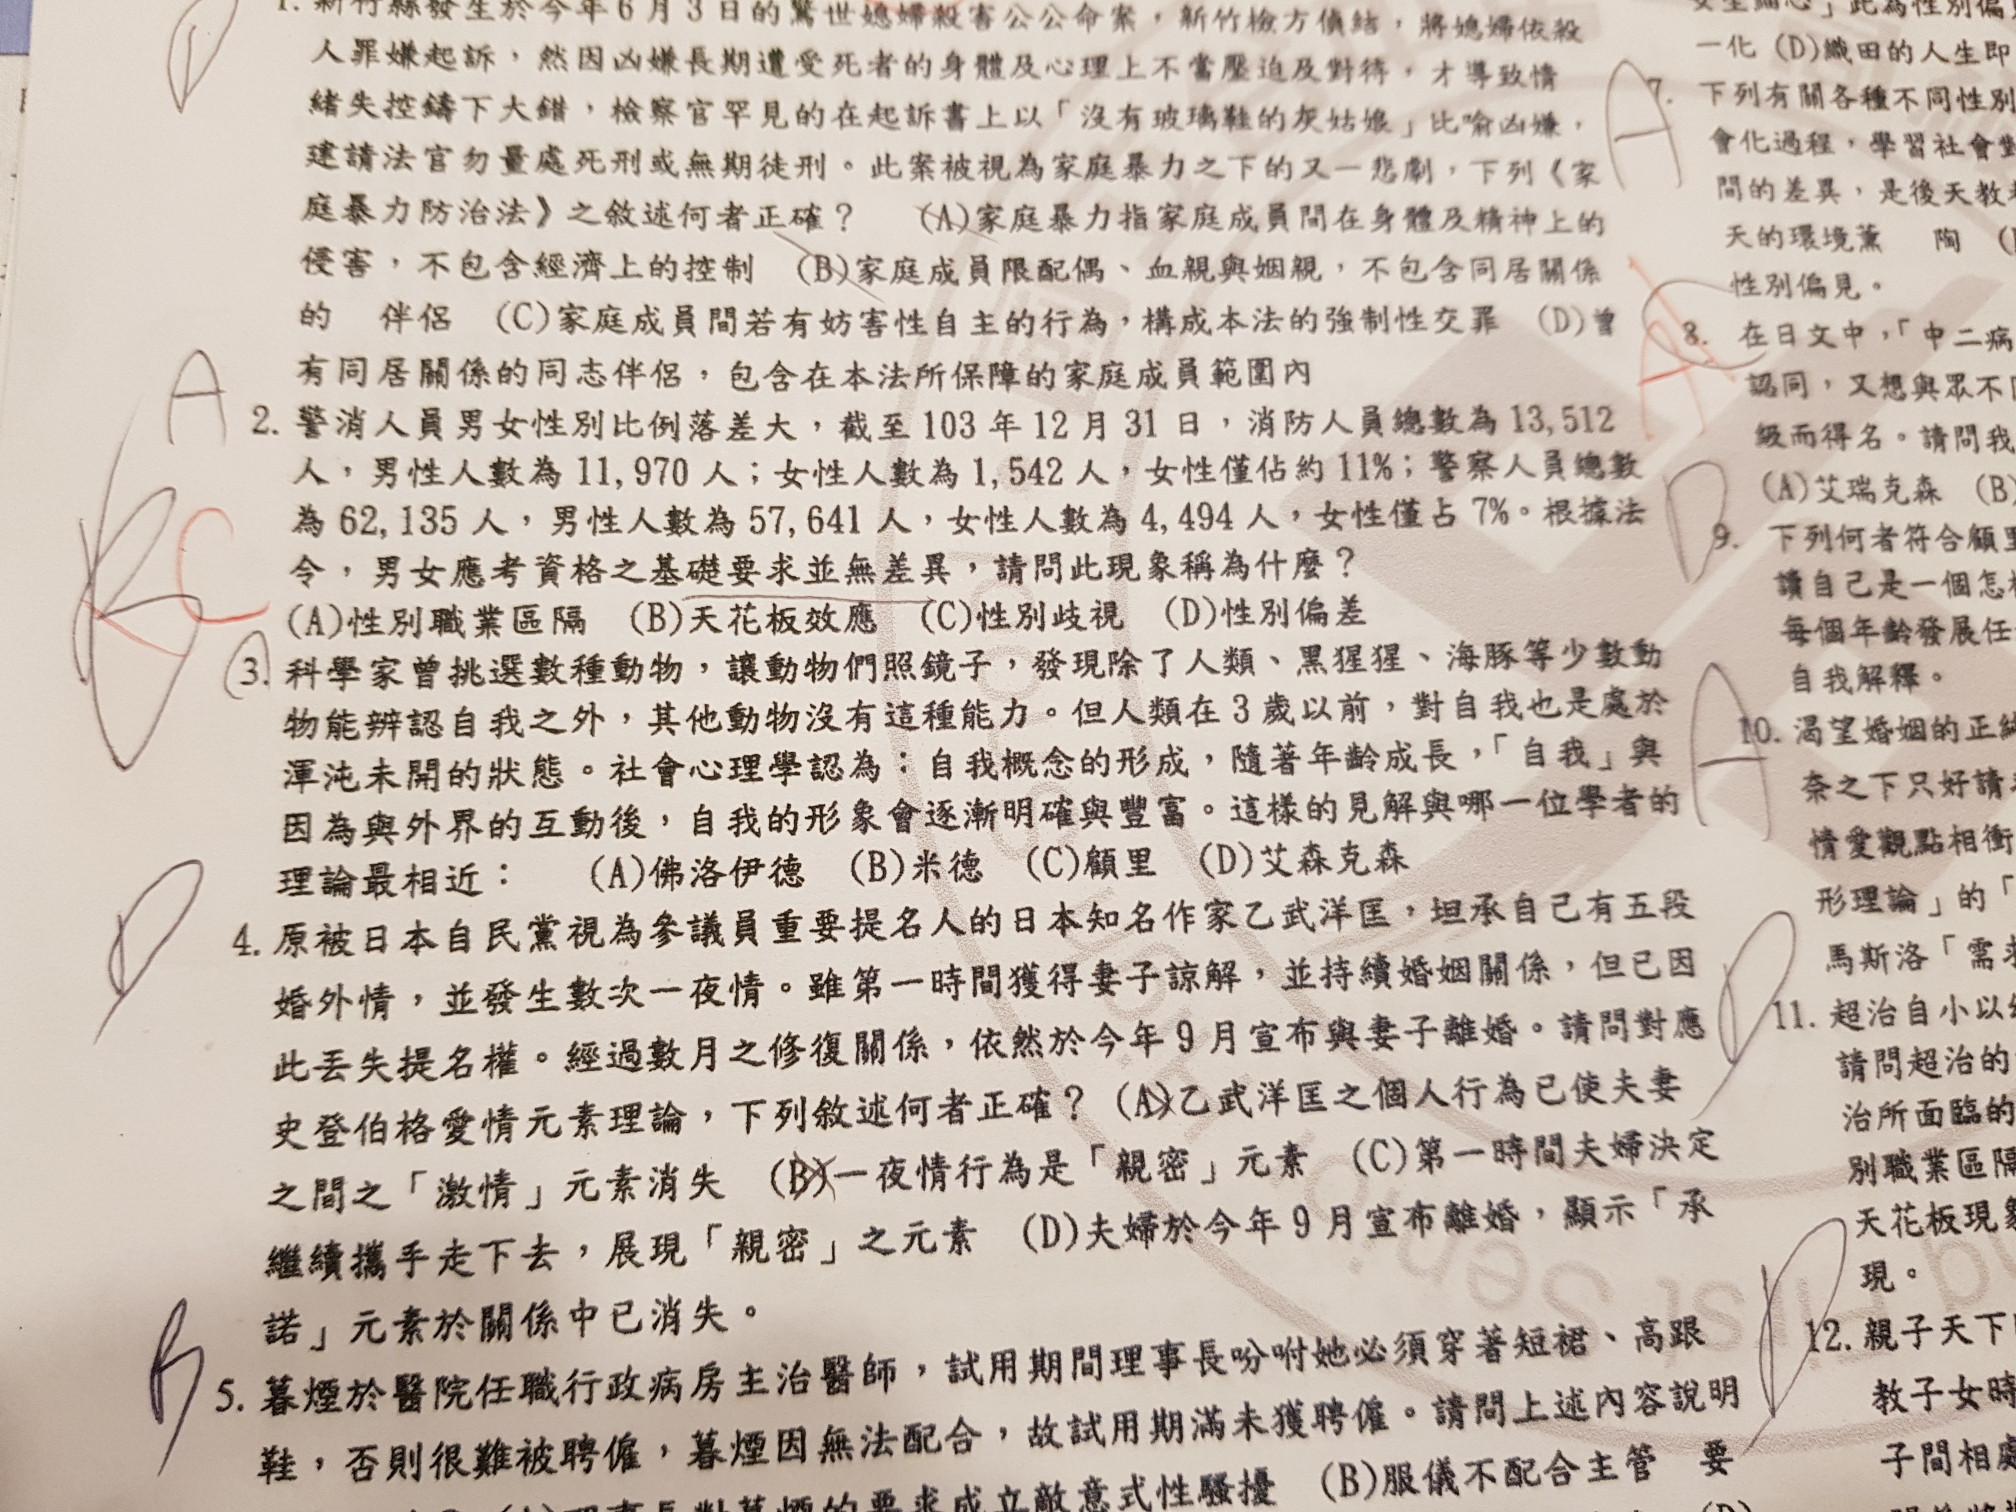 1. 新竹縣發生於今年6月3日的驚世媳婦殺害公公命案，新竹檢方偵結，將媳婦依殺
人罪嫌起訴，然因凶嫌長期遭受死者的身體及心理上不當壓迫及對待，才導致情
緒失控鑄下大錯，檢察官罕見的在起訴書上以「沒有玻璃鞋的灰姑娘」比喻凶嫌，
建請法官勿量處死刑或無期徒刑。此案被視為家庭暴力之下的又一悲劇，下列《家
庭暴力防治法》之敘述何者正確？ (A)家庭暴力指家庭成員間在身體及精神上的
侵害，不包含經濟上的控制 (B)家庭成員限配偶、血親與姻親，不包含同居關係
的 伴侶 (C)家庭成員間若有妨害性自主的行為，構成本法的強制性交罪 (D)曾
有同居關係的同志伴侶，包含在本法所保障的家庭成員範圍內
A
2. 警消人員男女性別比例落差大，截至103年12月31日，消防人員總數為13,512
人，男性人數為11,970人；女性人數為1,542人，女性僅佔約11%；警察人員總數
為62,135人，男性人數為57,641人，女性人數為4,494人，女性僅占7%。根據法
令，男女應考資格之基礎要求並無差異，請問此現象稱為什麼？
(A)性別職業區隔 (B)天花板效應 (C)性別歧視 (D)性別偏差
C
3. 科學家曾挑選數種動物，讓動物們照鏡子，發現除了人類、黑猩猩、海豚等少數動
物能辨認自我之外，其他動物沒有這種能力。但人類在3歲以前，對自我也是處於
渾沌未開的狀態。社會心理學認為：自我概念的形成，隨著年齡成長，「自我」與
因為與外界的互動後，自我的形象會逐漸明確與豐富。這樣的見解與哪一位學者的
理論最相近： (A)佛洛伊德 (B)米德 (C)顧里 (D)艾森克森
D
4. 原被日本自民黨視為參議員重要提名人的日本知名作家乙武洋匡，坦承自己有五段
婚外情，並發生數次一夜情。雖第一時間獲得妻子諒解，並持續婚姻關係，但已因
此丟失提名權。經過數月之修復關係，依然於今年9月宣布與妻子離婚。請問對應
史登伯格愛情元素理論，下列敘述何者正確？ (A)乙武洋匡之個人行為已使夫妻
之間之「激情」元素消失 (B)一夜情行為是「親密」元素 (C)第一時間夫婦決定
繼續攜手走下去，展現「親密」之元素 (D)夫婦於今年9月宣布離婚，顯示「承
諾」元素於關係中已消失。
B
5. 暮煙於醫院任職行政病房主治醫師，試用期間理事長吩咐她必須穿著短裙、高跟
鞋，否則很難被聘僱，暮煙因無法配合，故試用期滿未獲聘僱。請問上述內容說明
(A)理事長對暮煙的要求成立敵意式性騷擾 (B)服儀不配合主管 要
一化 (D)織田的人生即
A
7. 下列有關各種不同性別
會化過程，學習社會對
間的差異，是後天教
天的環境薰 陶
性別偏見。
8. 在日文中，「中二病
認同，又想與眾不同
級而得名。請問我
(A)艾瑞克森 (B)
D
9. 下列何者符合顧里
讀自己是一個怎
每個年齡發展任
自我解釋。
A
10. 渴望婚姻的正
奈之下只好請
情愛觀點相衝
形理論」的「
馬斯洛「需求
D
11. 超治自小以
請問超治的
治所面臨的
別職業區隔
天花板現象
現。
D
12. 親子天下
教子女時
子間相處